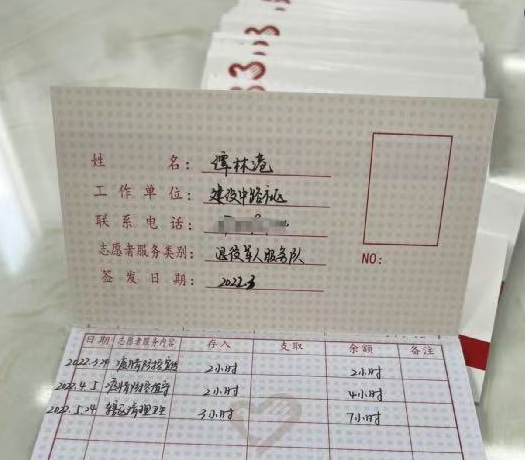 姓名：谭林
工作单位：建设中路社区
联系电话：
志愿者服务类别：退役军人服务队
签发日期：2022.3
NO:
日期 志愿者服务内容 存入 支取 余额 备注
疫情防控 2小时 2小时
2022.4.5 疫情防控值守 2小时 4小时
2022.5.24 辖区清理卫生 3小时 7小时